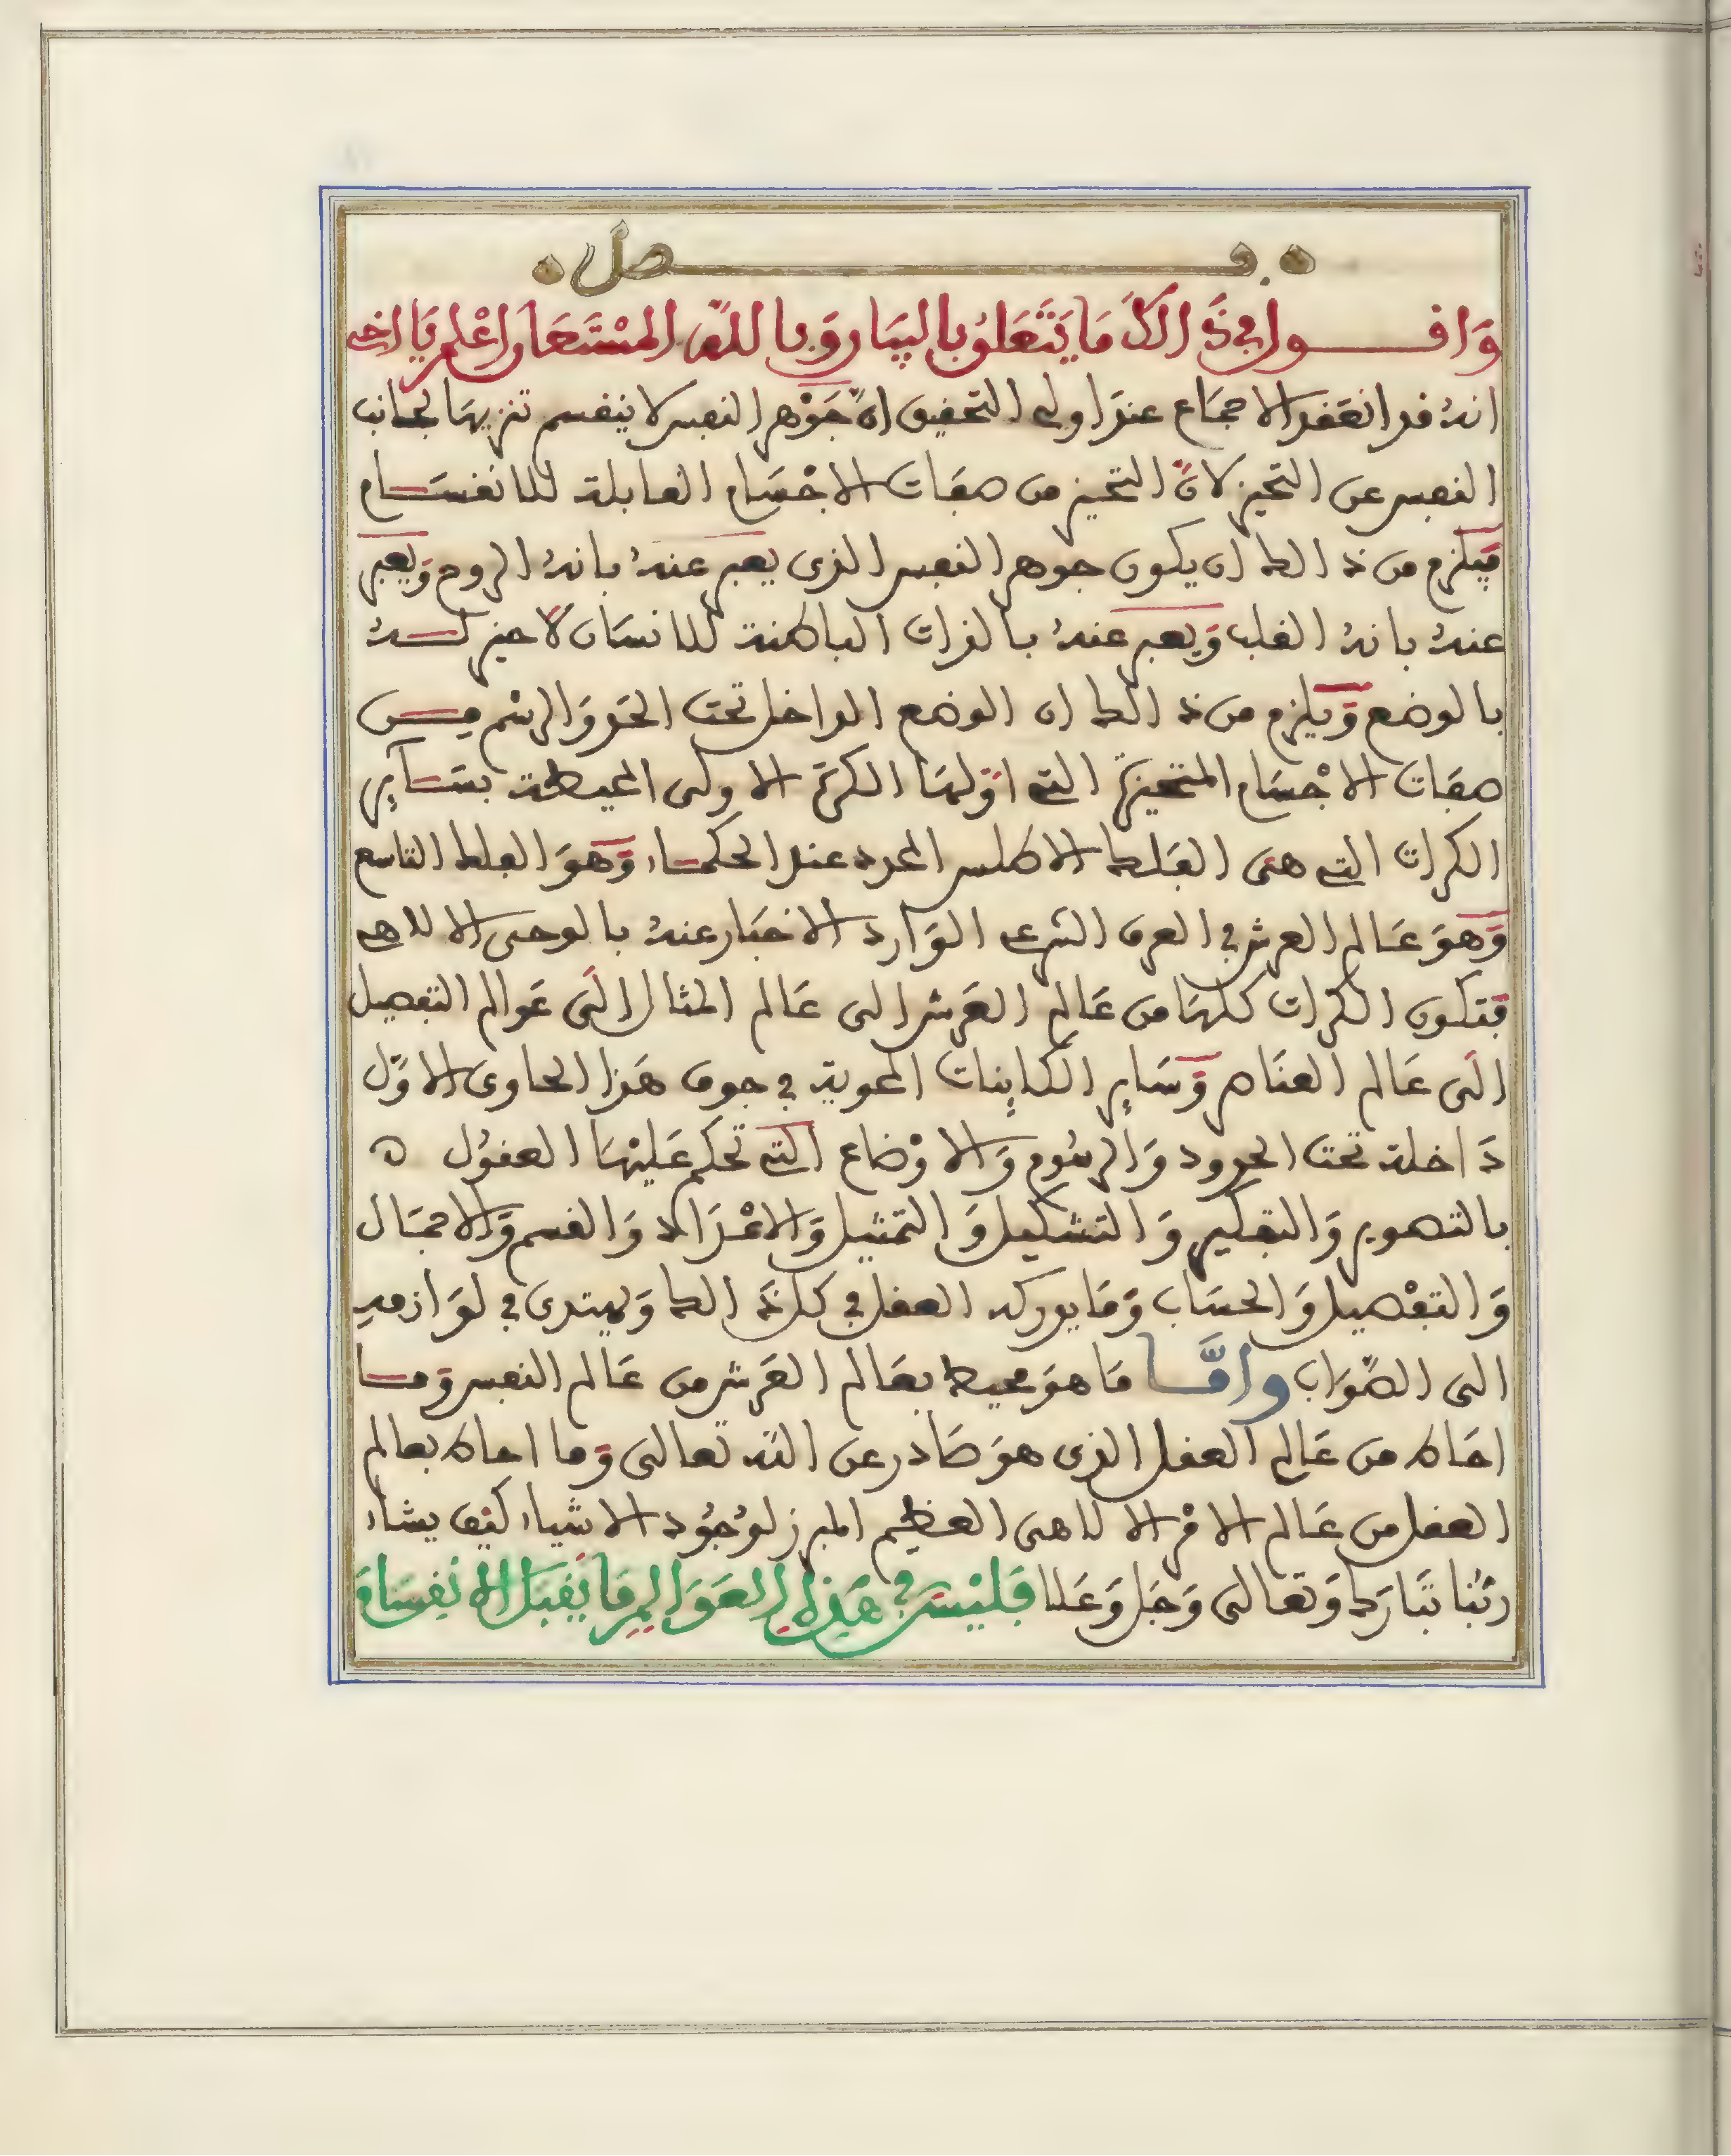 فصل
وَاقول في ذَالكَ مَا يَتَعَلقُ بالبيَان وَبالله المسْتَعَان اعْلم يَا اخي
انه قد انعَقد الاجمَاع عندَ اولي التحقيق انّ جَوْهر النفس لا ينقسم تنزيهًا لجانب
النفس عن التحيز لانّ التحيز من صفات الاجْسَام القابلة للانقسَام
فيَلزم من ذالك ان يكون جوهر النفس الذي يعبر عنهُ بانهُ الروح وَيعبر
عنهُ بانهُ القلب وَيعبر عنهُ بالذات الباطنة للانسَان لا حيز لهُ
بالوضع وَيلزم من ذالك ان الوضع الداخل تحت الحَد وَالرسْم من
صفات الاجْسَام المتحيزة التي اوّلهَا الكرَة الاولى المحيطة بسَآئر
الكرات التي هي الفَلك الاطلس المحدد عند الحكمَاء وَهوَ الفلك التاسع
وَهوَ عَالم العرش في العرف الشرعي الوَارد الاخبَار عنهُ بالوحي الالاهي
فتكون الكرات كلهَا من عَالم العَرش الى عَالم المثال الَى عَوالم التفصيل
الَى عَالم العنَاصر وَسَاير الكاينات المحوية في جوف هَذا الحاوي الاوّل
دَاخلة تحت الحدود وَالرسُوم وَالاوْضاع التي تحكم عَليْهَا العقوُل
بالتصوير وَالتفكير وَالتشكيل وَالتمثيل وَالاعْدَاد وَالقسم وَالاجمَال
وَالتفْصيل وَالحسَاب وَمَا يدركه العقل في كل ذَالك وَيهتدي في لوَازمه
الى الصّوَاب وامَّا مَا هوَ محيط بعَالم العَرش من عَالم النفس وَمَا
احَاط من عَالم العقل الذي هوَ صَادر عن الله تعَالى وَما احاط بعالم
العقل من عَالم الامْر الالاهي العظيم المبرز لوُجُود الاشياء كيْف يشاء
ربُّنا تبَارَك وَتعالى وَجَل وَعَلا فَليْسَ في هَذِهِ العَوَالِمِ مَا يَقبَل الانقِسَامَ